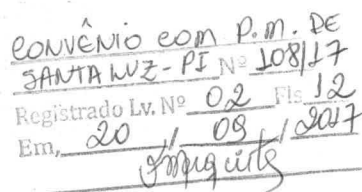 CONVÊNIO COM P.M. DE
SANTA LUZ - PI Nº 108/17
Registrado Lv. Nº 02 Fls 12
Em, 20 / 09 / 2017